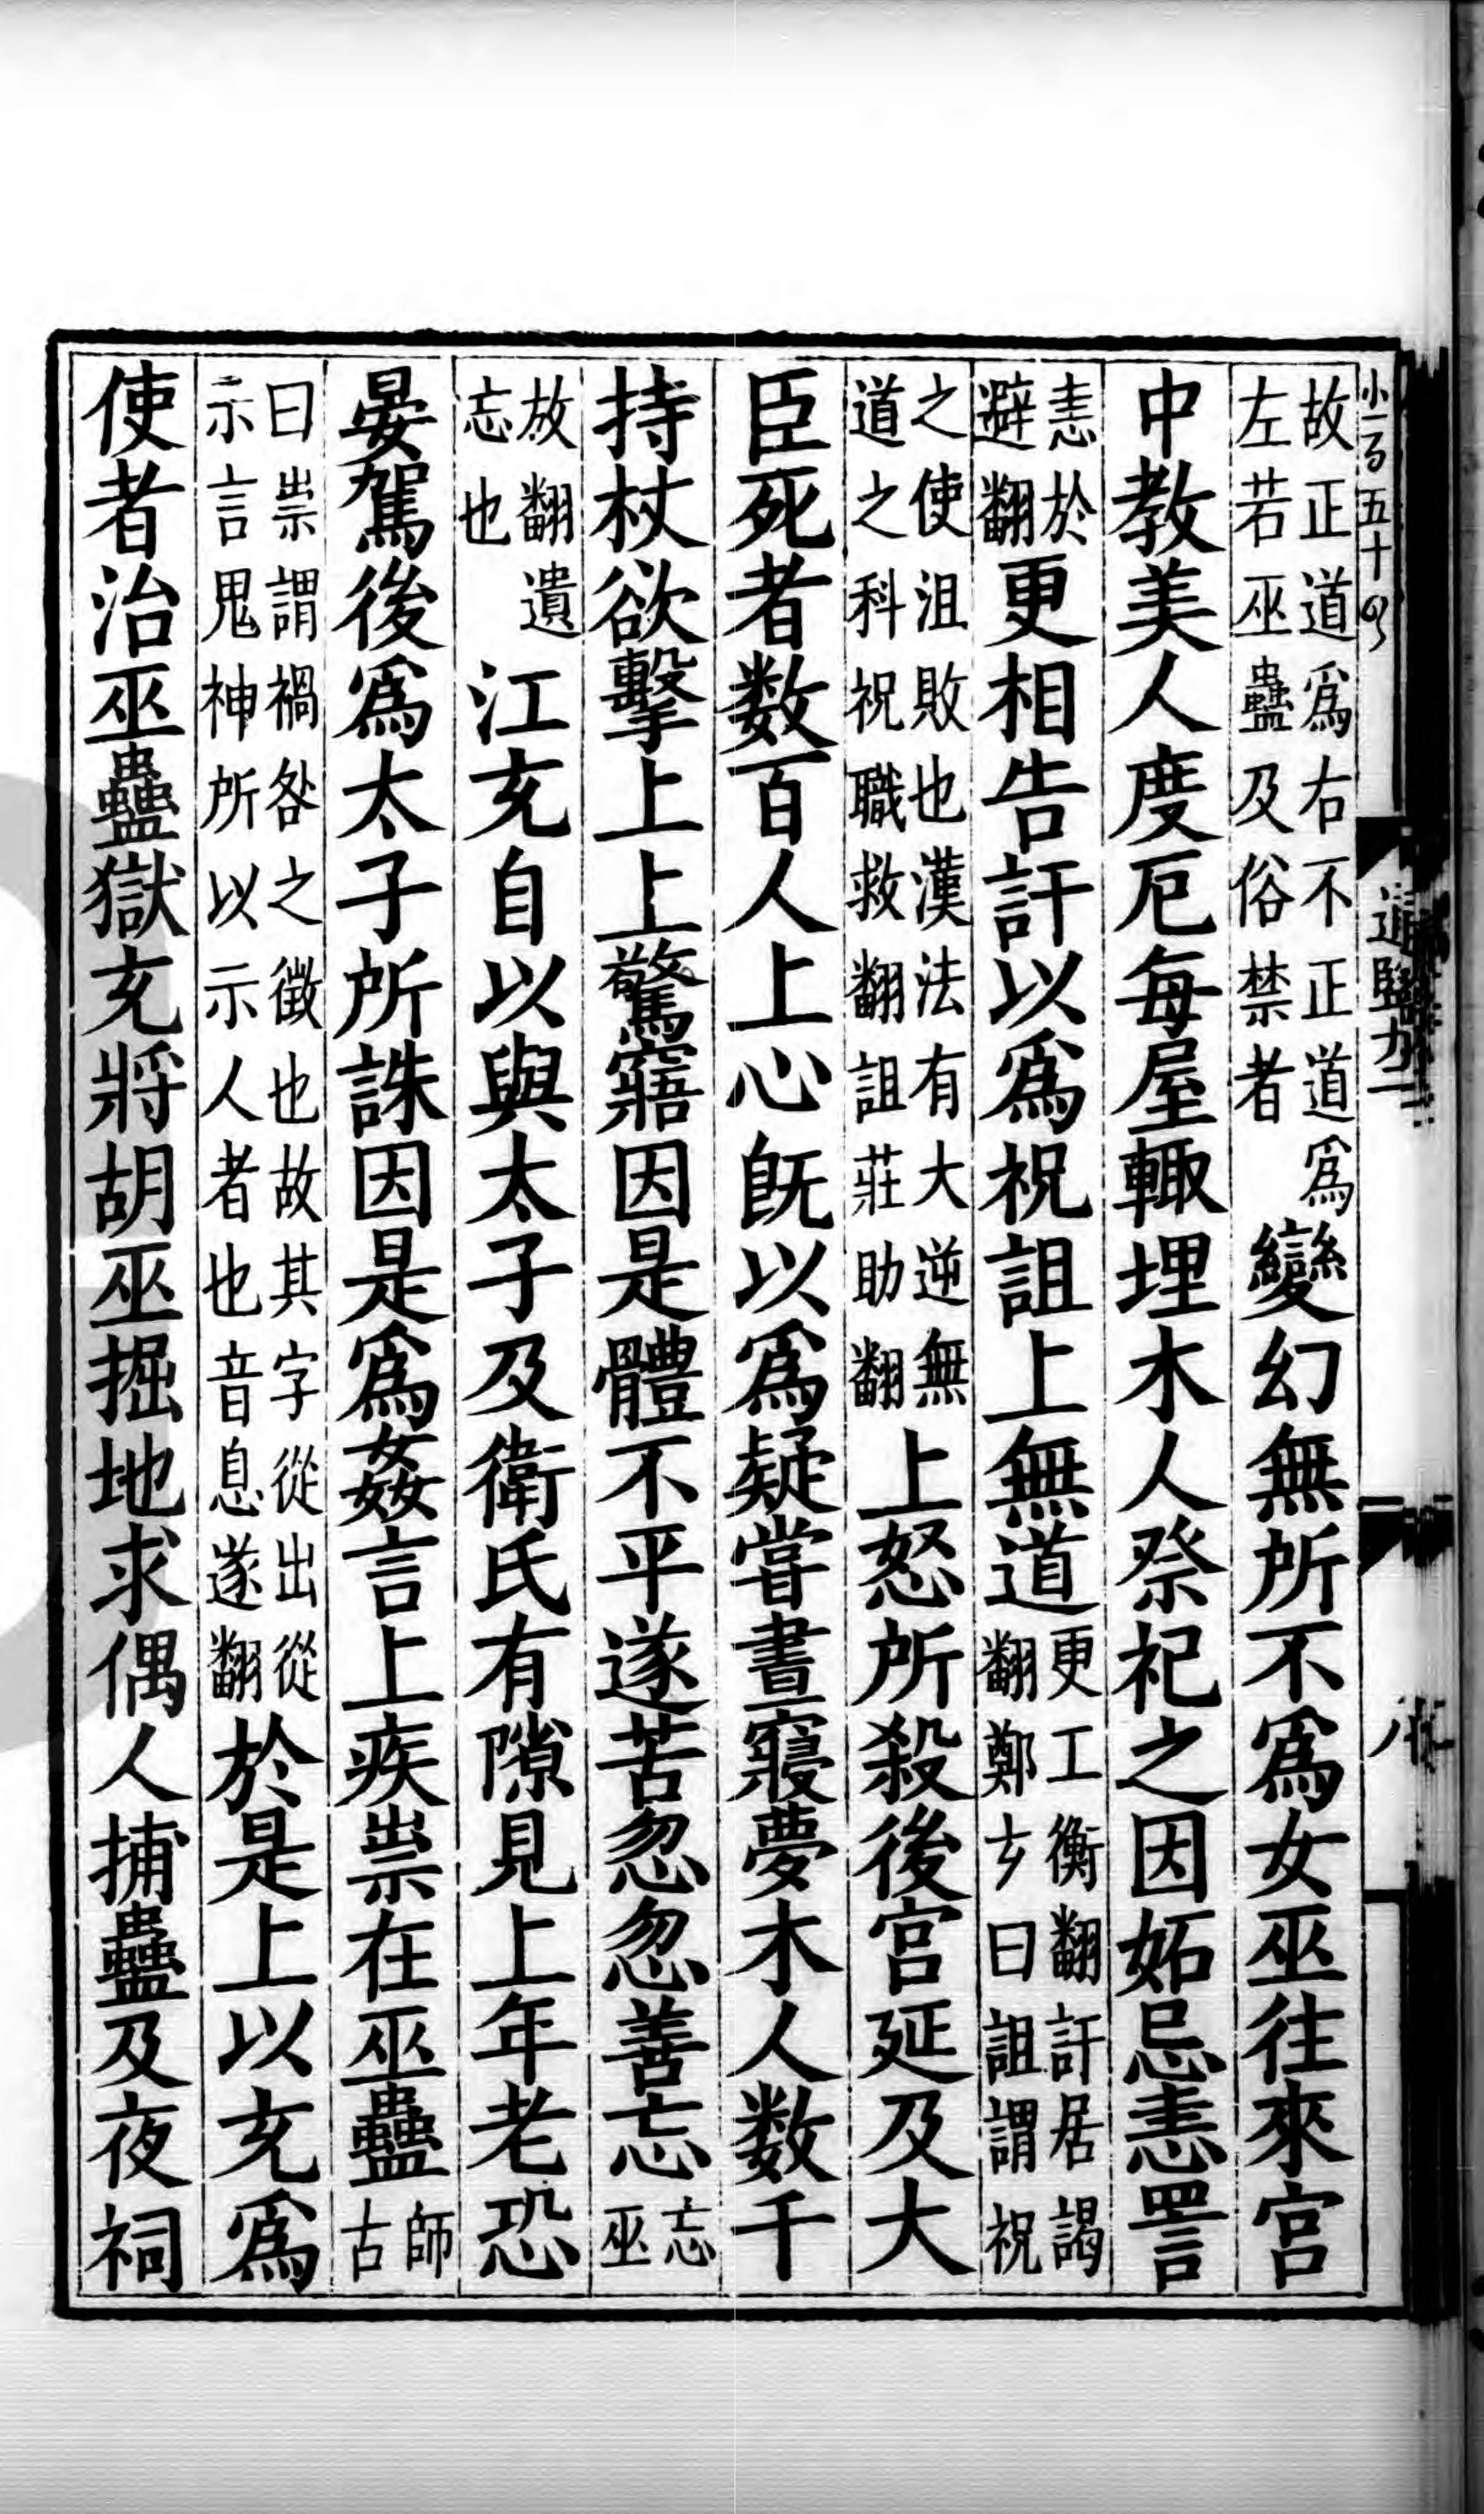 故正道爲右不正道爲
左若巫蠱及俗禁者
變幻無所不爲女巫往來宮
中教美人度厄每屋輙埋木人祭祀之因妬忌恚詈
恚於
避翻
更相告訐以爲祝詛上無道
更工衡翻訐居謁
翻鄭𠫤曰詛謂祝
之使沮敗也漢法有大逆無
道之科祝職救翻詛莊助翻
上怒所殺後宮延及大
臣死者数百人上心旣以爲疑嘗晝寢夢木人数千
持杖欲擊上上驚寤因是體不平遂苦忽忽善忘
忘巫
放翻遺
忘也
江充自以與太子及衛氏有隙見上年老恐
晏駕後爲太子所誅因是爲姦言上疾祟在巫蠱
師古
曰祟謂禍咎之徵也故其字從出從
示言鬼神所以示人者也音息遂翻
於是上以充爲
使者治巫蠱獄充將胡巫掘地求偶人捕蠱及夜祠
小一百五十
通鑑